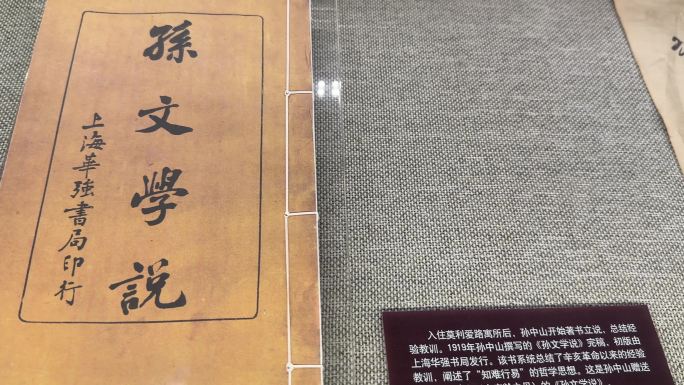 孫文學說
上海華強書局印行
入住莫利爱路寓所后，孙中山开始著书立说，总结经
验教训。1919年孙中山撰写的《孙文学说》完稿，初版由
上海华强书局发行。该书系统总结了辛亥革命以来的经验
教训，阐述了“知难行易”的哲学思想。这是孙中山赠送
的《孙文学说》